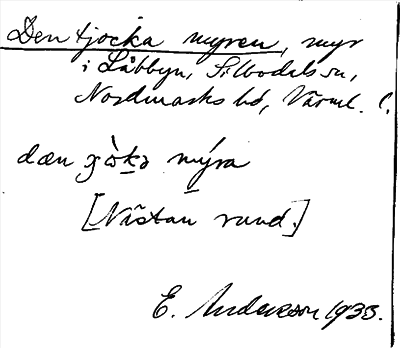 Den tjocka myren, myr
i Låbbyn, Silbodals sn,
Nordmarks hd, Värml. l.
dæn
[Nästan rund.]
E. Anderson 1935.